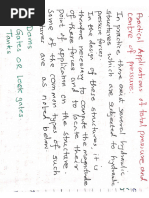 Practical Applications of total pressure and
centre of pressure:
In practice, there exist several hydraulic
structures which are subjected
pressure forces
In the design of these structures, it is
therefore necessary to compute the magnitude
of these forces and to locate their
point of application on the structure.
Some of the common types of such
are
Dams
Gates or Lock gates
Tanks